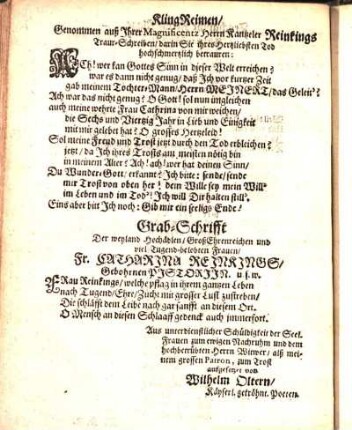 KlingReimen/
Genommen auß Ihrer Magnificentz Herrn Kantzeler Reinkings
Traur-Schreiben/ darin Sie ihres Hertzliebsten Tod
hochschmertzlich betrauren:
ACh! wer kan Gottes Sinn in dieser Welt erreichen?
war es dann nicht genug/ daß Ich vor kurtzer Zeit
gab meinem Tochter-Mann/ Herrn MEINERT/ das Geleit?
Ach war das nicht genug? O Gott! sol nun imgleichen
auch meine wehrte Frau Cathrina von mir weichen/
die Sechs und Viertzig Jahr in Lieb und Einigkeit
mit mir gelebet hat? O grosses Hertzeleid!
Sol meine Freud und Trost jetzt durch den Tod erbleichen?
jetzt/ da Ich ihres Trosts am meisten nötig bin
in meinem Alter? Ach! ach! wer hat deinen Sinn/
Du Wunder-Gott/ erkannt? Ich bitte: sende/ sende
mir Trost von oben her! dein Wille setz mein Will'
im Leben und im Tod! Ich will Dir halten still'.
Eins aber bitt Ich noch: Gib mit ein seeligs Ende!
Grab-Schrifft
Der weyland Hochädlen/ GroßEhrenreichen und
viel Tugend-belobten Frauen/
Fr. CATHARINA REINKINGS/
Gebohrnen PISTORIIN. u. s. w.
FRau Reinkings/ welche pflag in ihrem gantzen Leben
nach Tugend/ Ehre/ Zucht mit grosser Lust zustreben/
Die schläfft dem Leibe nach gar sanfft an diesem Ort.
O Mensch an diesen Schlaaff gedenck auch immerfort.
Aus unterdienstlicher Schüldigkeit der Seel.
Frauen zum ewigen Nachruhm und dem
hochbetrübten Herrn Witwer/ alß mei-
nem grossen Patron, zum Trost
aufgesetzet von
Wilhelm Oltern/
Käyserl. gekröhnt. Poeten.